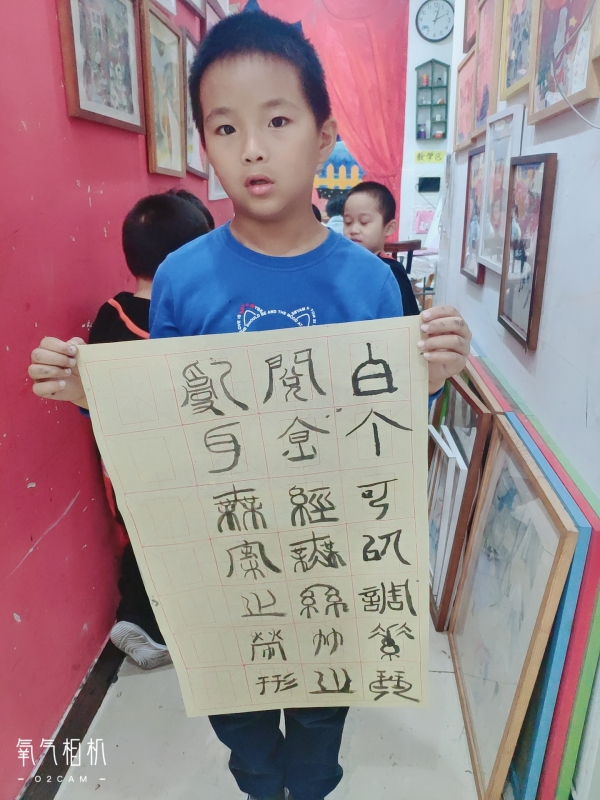 白丁可以調素琴
閱金經無絲竹之
亂耳無案之勞形
教学区
氧气相机
O2CAM